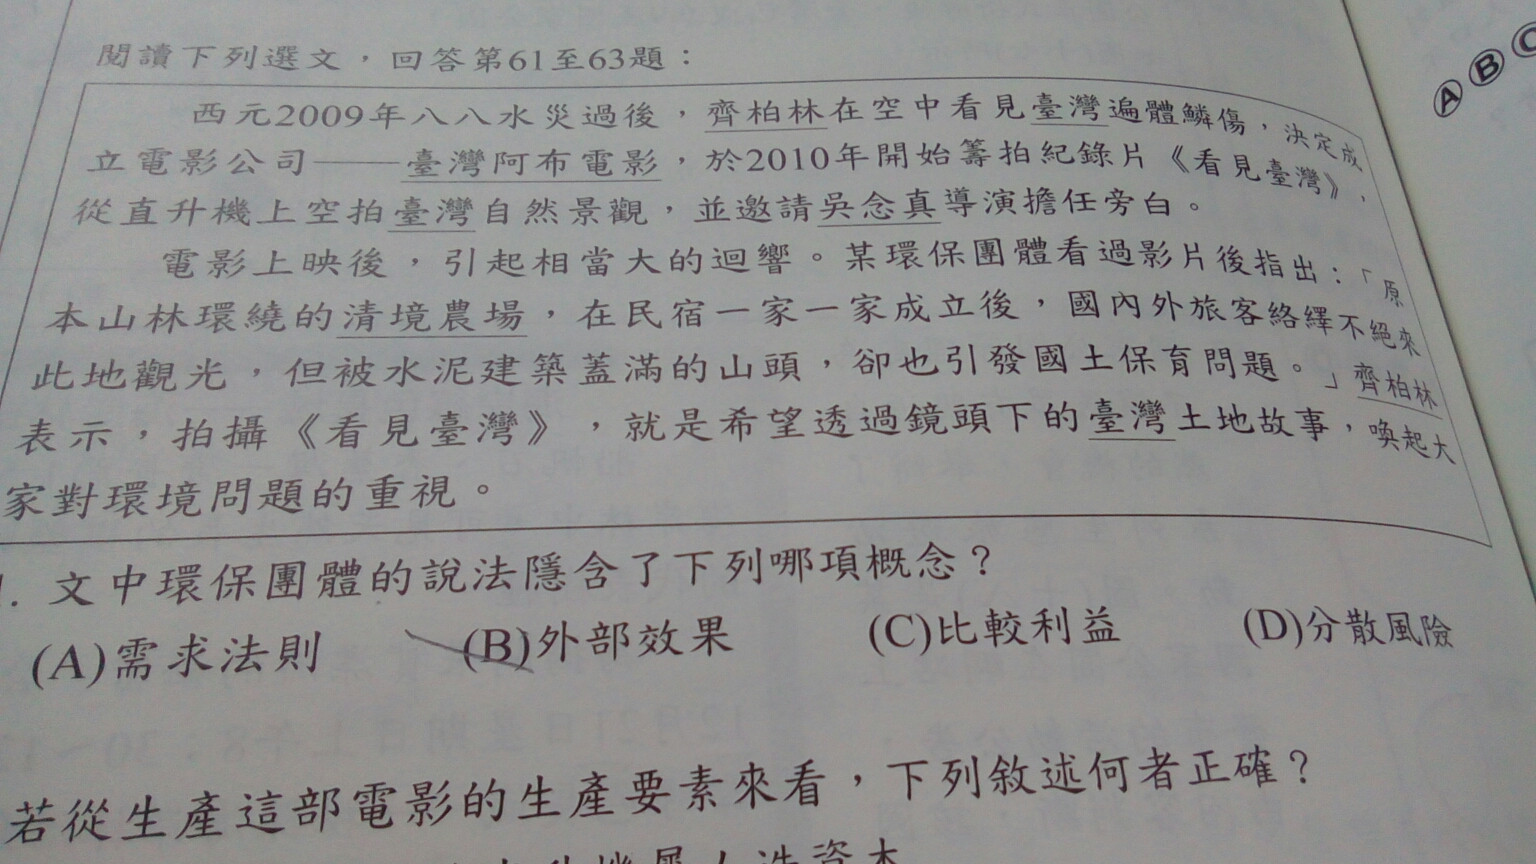 閱讀下列選文，回答第61至63題：
西元2009年八八水災過後，齊柏林在空中看見臺灣遍體鱗傷，決定成
立電影公司——臺灣阿布電影，於2010年開始籌拍紀錄片《看見臺灣》，
從直升機上空拍臺灣自然景觀，並邀請吳念真導演擔任旁白。
電影上映後，引起相當大的迴響。某環保團體看過影片後指出：「原
本山林環繞的清境農場，在民宿一家一家成立後，國內外旅客絡繹不絕來
此地觀光，但被水泥建築蓋滿的山頭，卻也引發國土保育問題。」齊柏林
表示，拍攝《看見臺灣》，就是希望透過鏡頭下的臺灣土地故事，喚起大
家對環境問題的重視。
1. 文中環保團體的說法隱含了下列哪項概念？
(A)需求法則 (B)外部效果 (C)比較利益 (D)分散風險
若從生產這部電影的生產要素來看，下列敘述何者正確？
Ⓐ Ⓑ Ⓒ